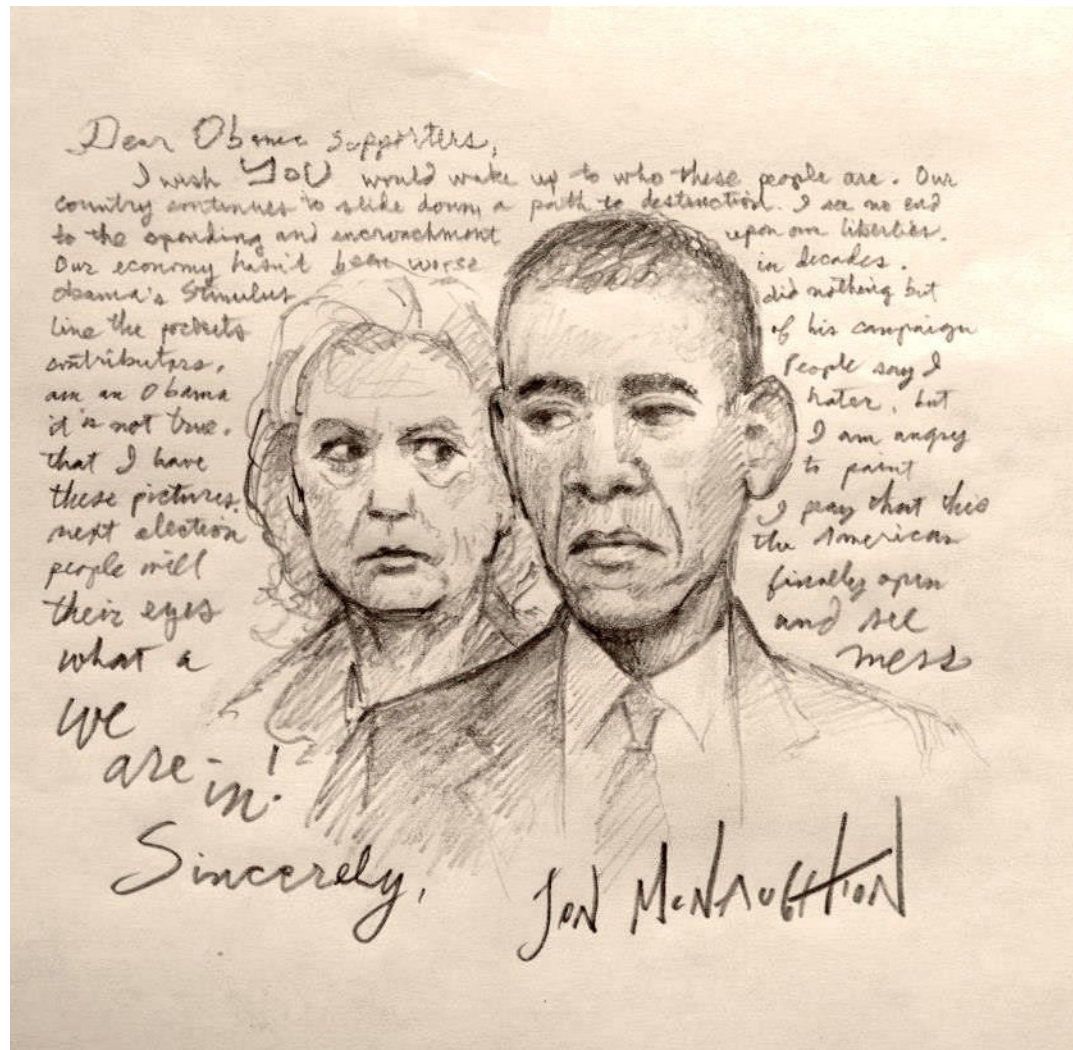 Dear Obama Supporters,
I wish YOU would wake up to who these people are. Our
country continues to slide down a path to destruction. I see no end
to the spending and encroachment upon our liberties.
Our economy hasn't been worse in decades.
Obama's Stimulus did nothing but
line the pockets of his campaign
contributors. People say I
am an Obama hater, but
it is not true. I am angry
that I have to paint
these pictures. I pray that this
next election the American
people will finally open
their eyes and see
what a mess
we
are in!
Sincerely,
Jon McNaughton